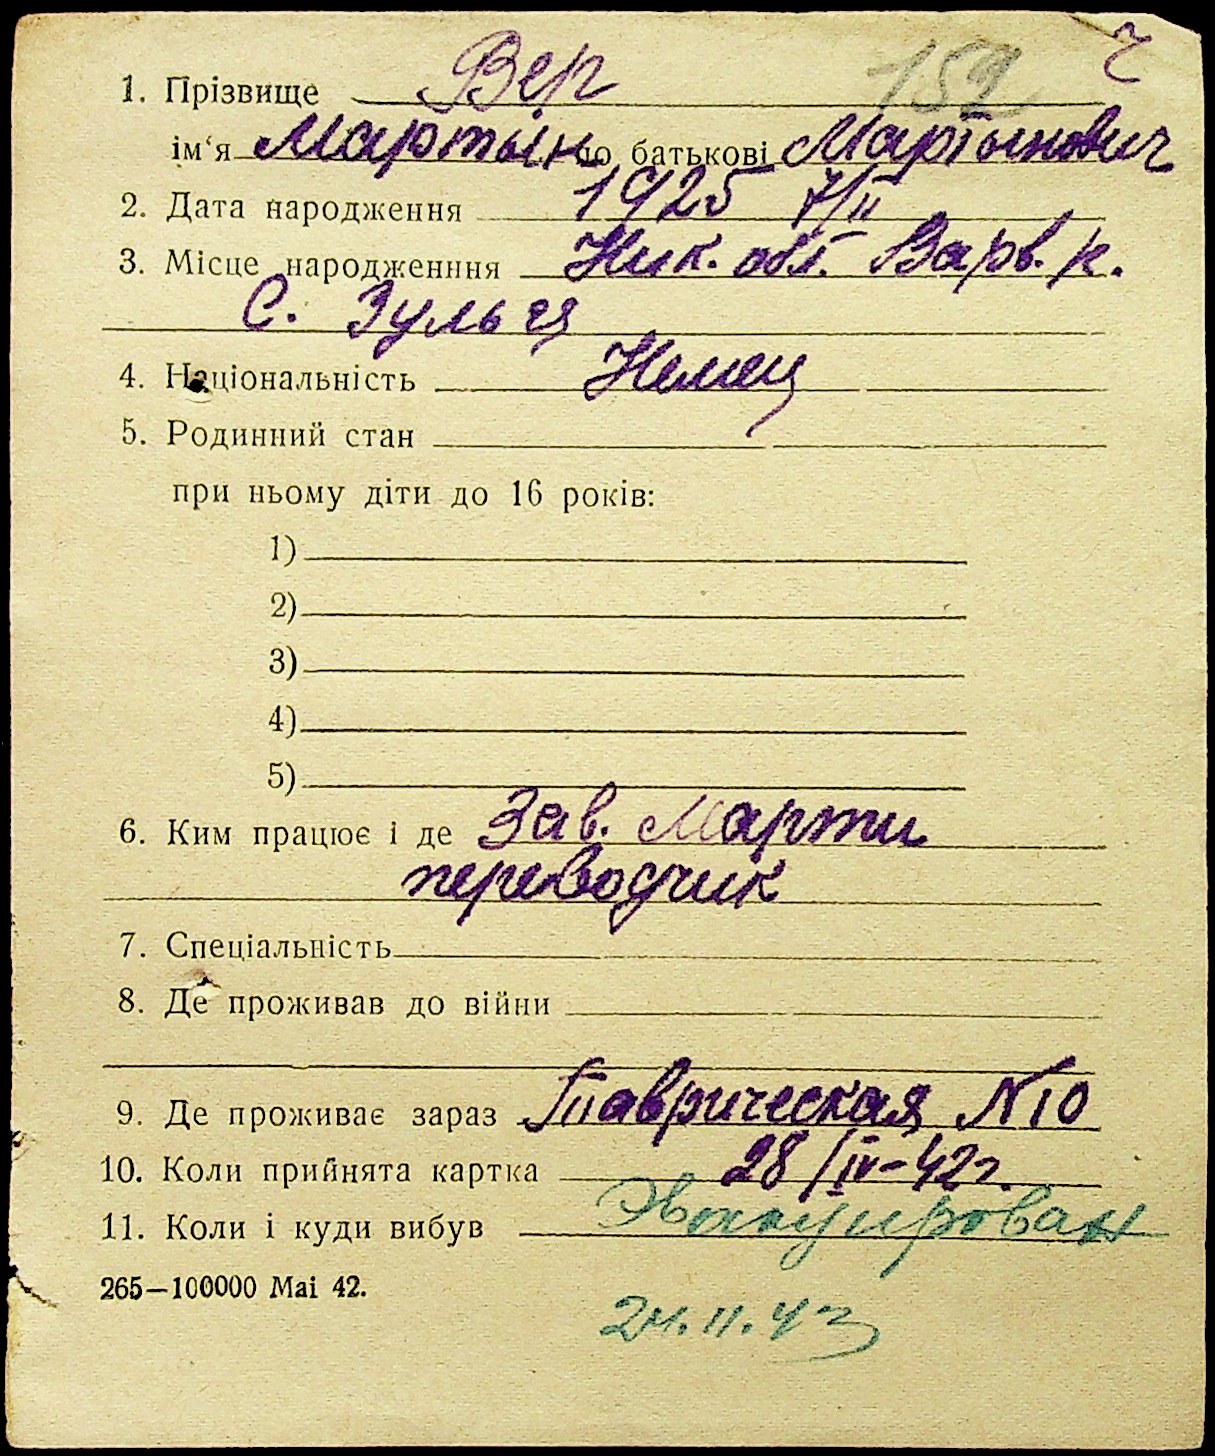 152 2
1. Прізвище Вер
ім‘я Мартын по батькові Мартынович
2. Дата народження 1925 7/II
3. Місце народженння Ник. обл. Варв. р.
С. Зульця
4. Національність Немец
5. Родинний стан
при ньому діти до 16 років:
1)
2)
3)
4)
5)
6. Ким працює і де Зав. Марти
переводчик
7. Спеціальність
8. Де проживав до війни
9. Де проживає зараз Таврическая N10
10. Коли прийнята картка 28/IV-42г.
11. Коли і куди вибув Эвакуирован
265—100000 Mai 42.
24.11.43